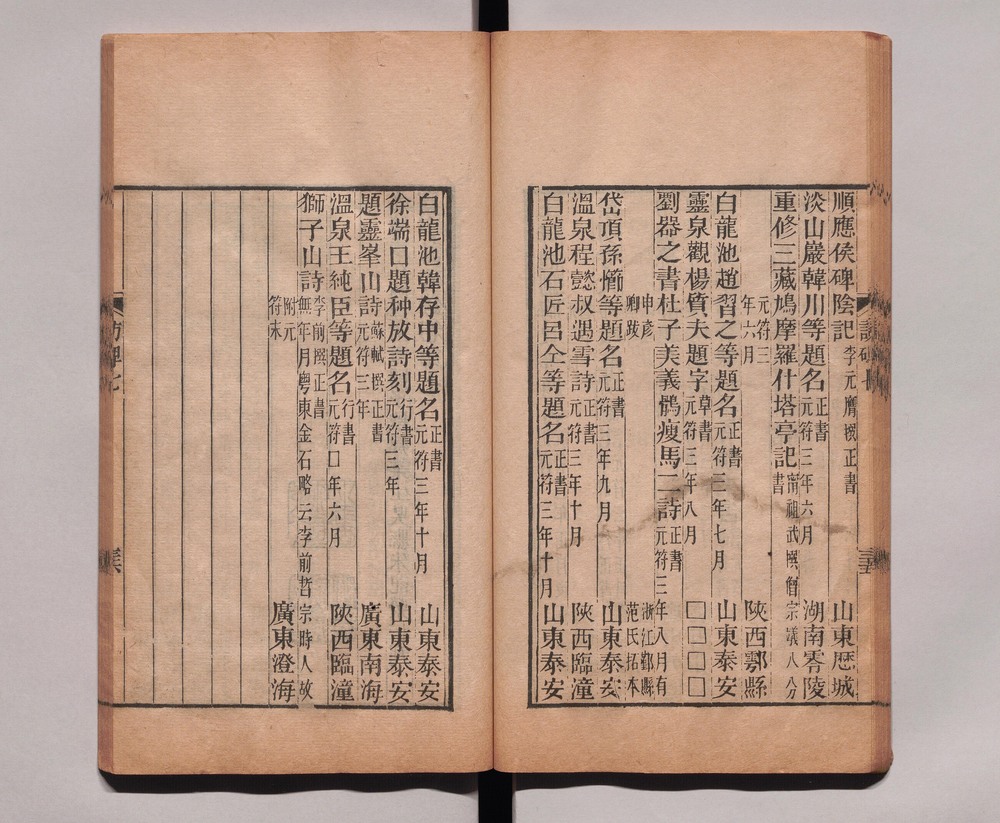 順應侯碑陰記 李元膺撰正書 山東歷城
淡山巖韓川等題名 正書元符三年六月 湖南零陵
重修三藏鳩摩羅什塔亭記 甯祖武撰僧宗議八分書
元符三年六月 陝西鄠縣
白龍池趙習之等題名 正書元符三年七月 山東泰安
靈泉觀楊贲夫題字 草書元符三年八月 □□□□
劉器之書杜子美義鶻瘦馬二詩 正書元符三年八月有
申彥卿跋 浙江鄞縣范氏拓本
岱頂孫懰等題名 正書元符三年九月 山東泰安
溫泉程懿叔遇雪詩 正書元符三年十月 陝西臨潼
白龍池石匠呂仝等題名 正書元符三年十月 山東泰安
白龍池韓存中等題名 正書元符三年十月 山東泰安
徐端口題种放詩刻 行書元符三年 山東泰安
題靈峯山詩 蘇軾撰正書元符三年 廣東南海
溫泉王純臣等題名 行書元符口年六月 陝西臨潼
獅子山詩 李前撰正書無年月粵東金石略云李前哲宗時人故
附元符末 廣東澄海